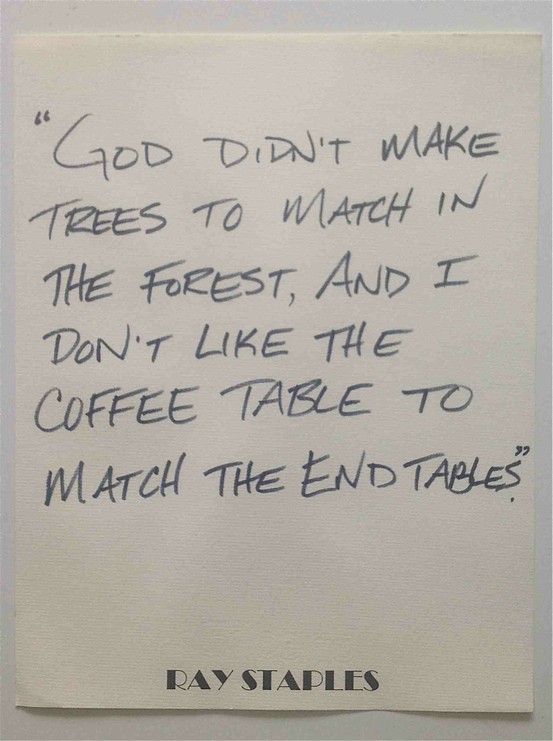 "GOD DIDN'T MAKE
TREES TO MATCH IN
THE FOREST, AND I
DON'T LIKE THE
COFFEE TABLE TO
MATCH THE END TABLES."
RAY STAPLES